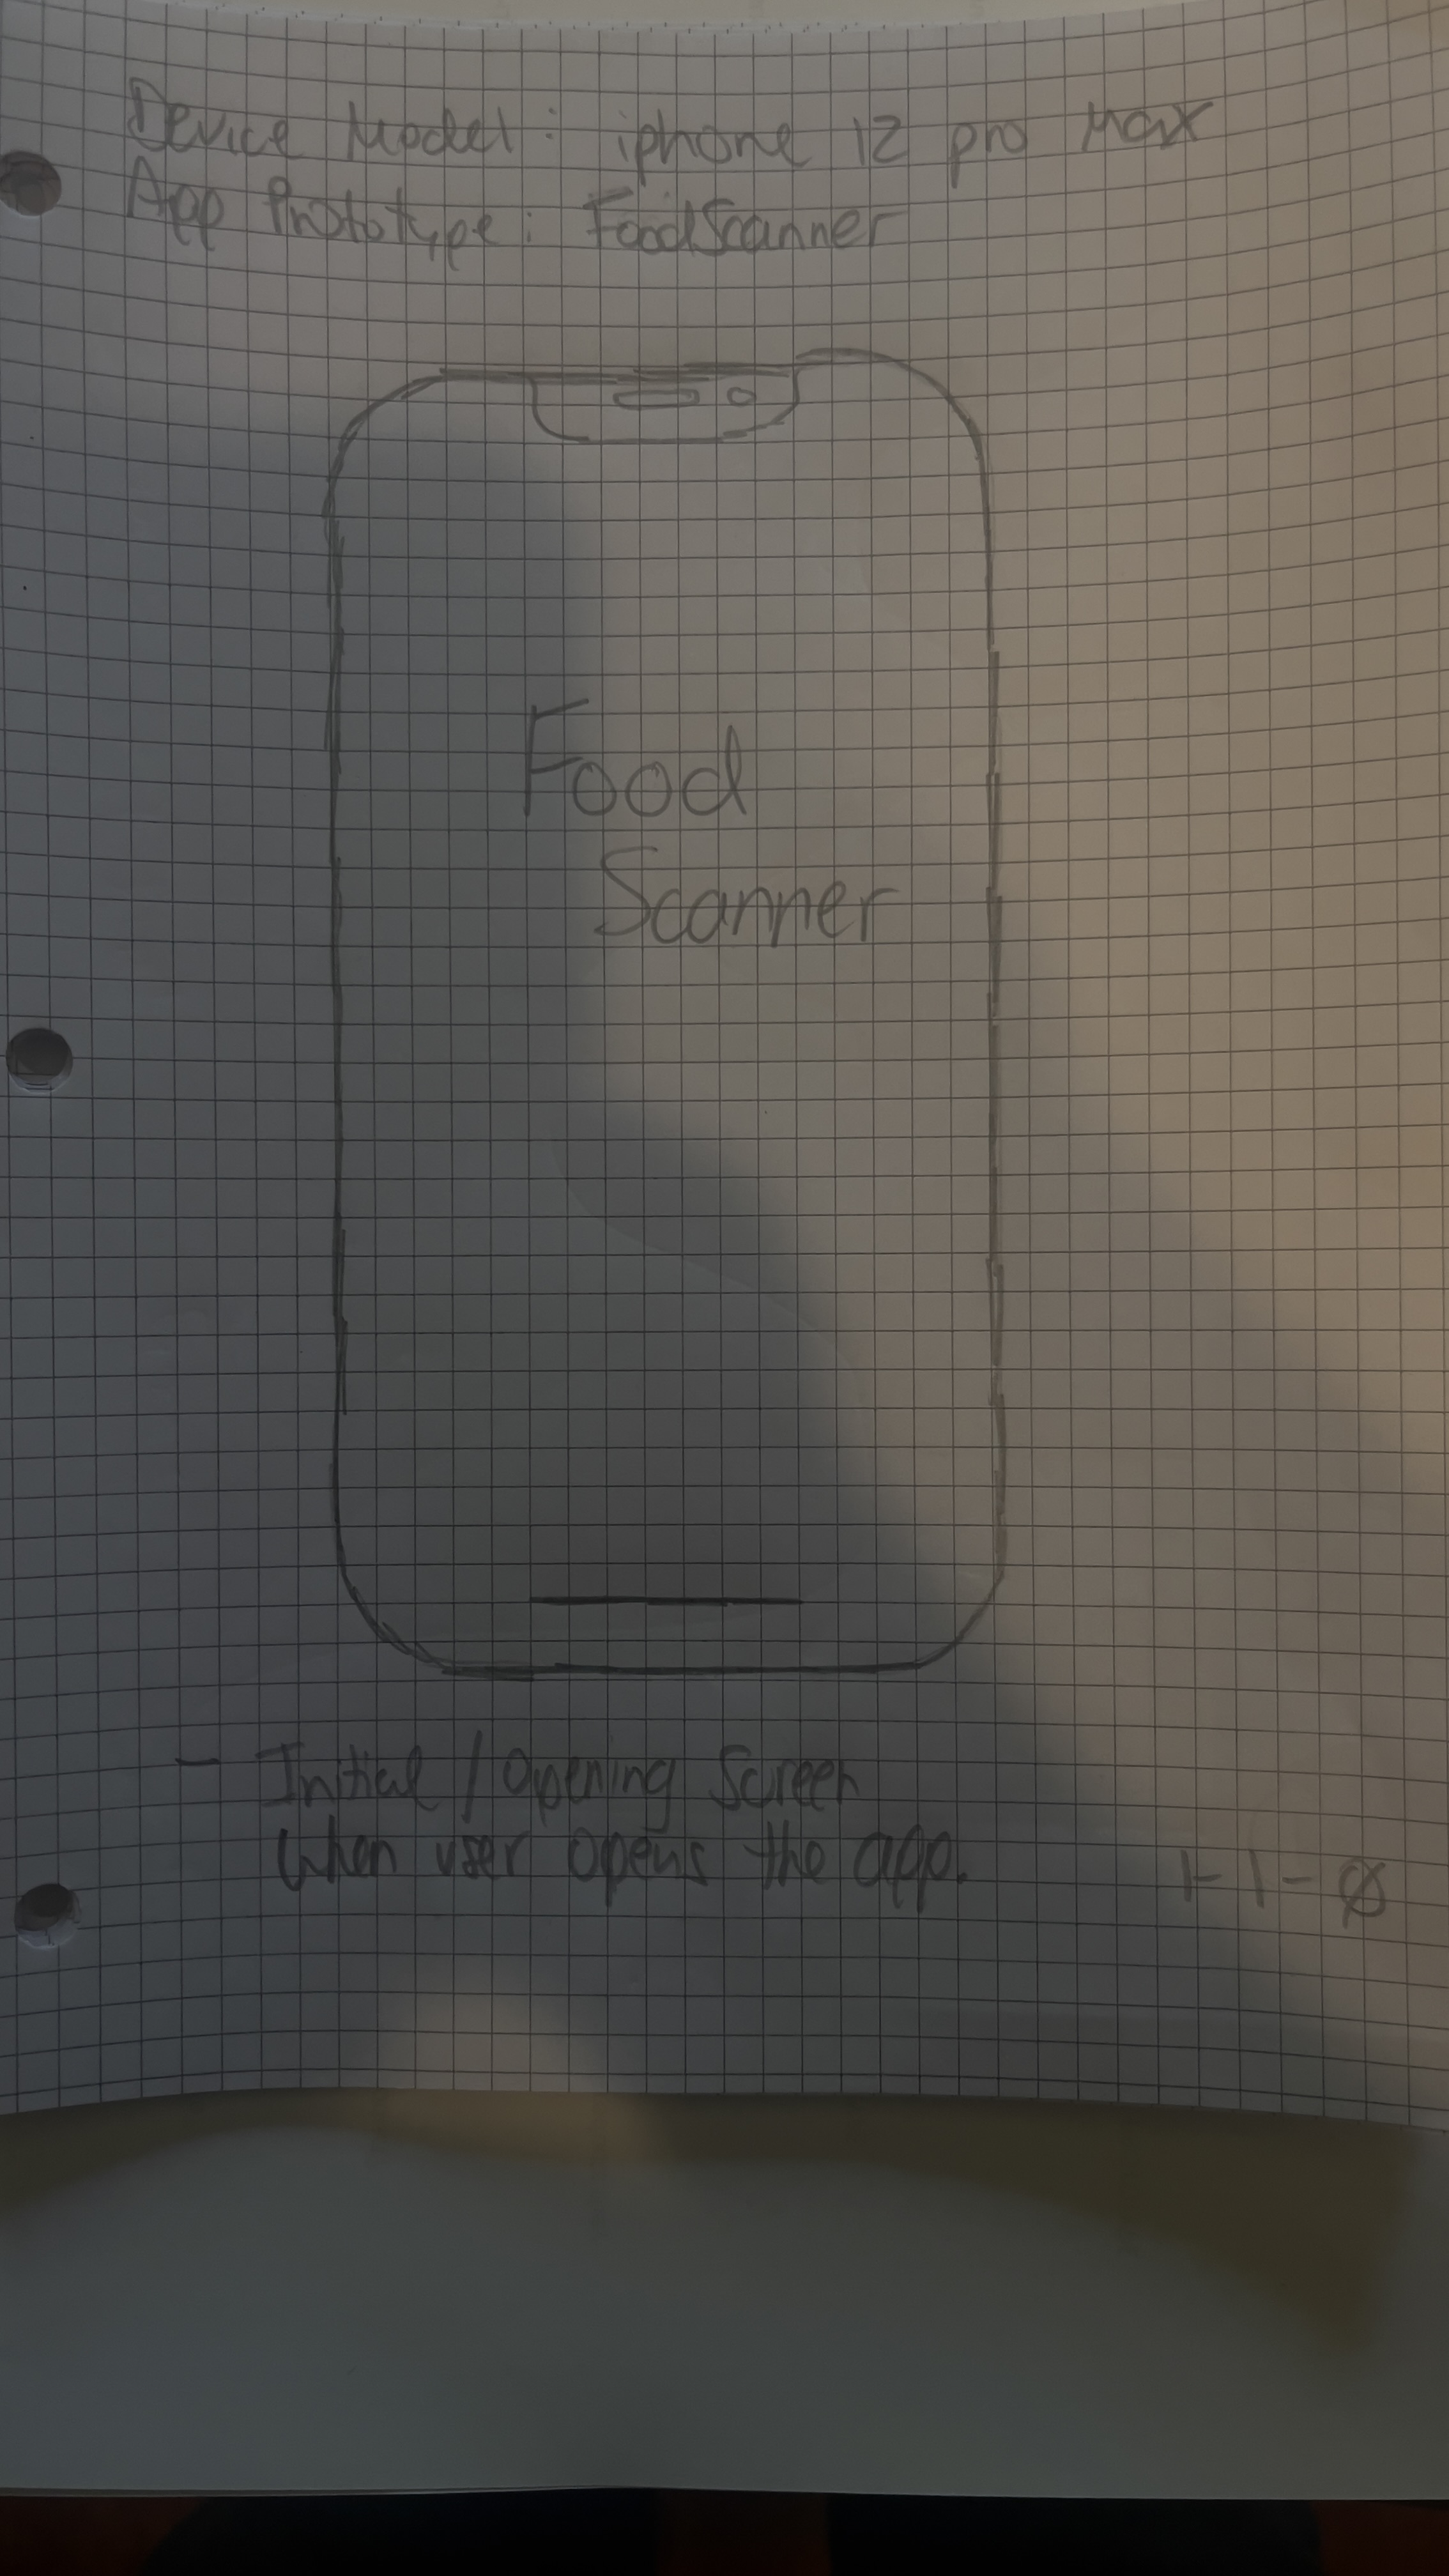 Device Model: iphone 12 pro Max
App Prototype: FoodScanner
Food
Scanner
- Initial / Opening Screen
when user opens the app.
1-1-Ø